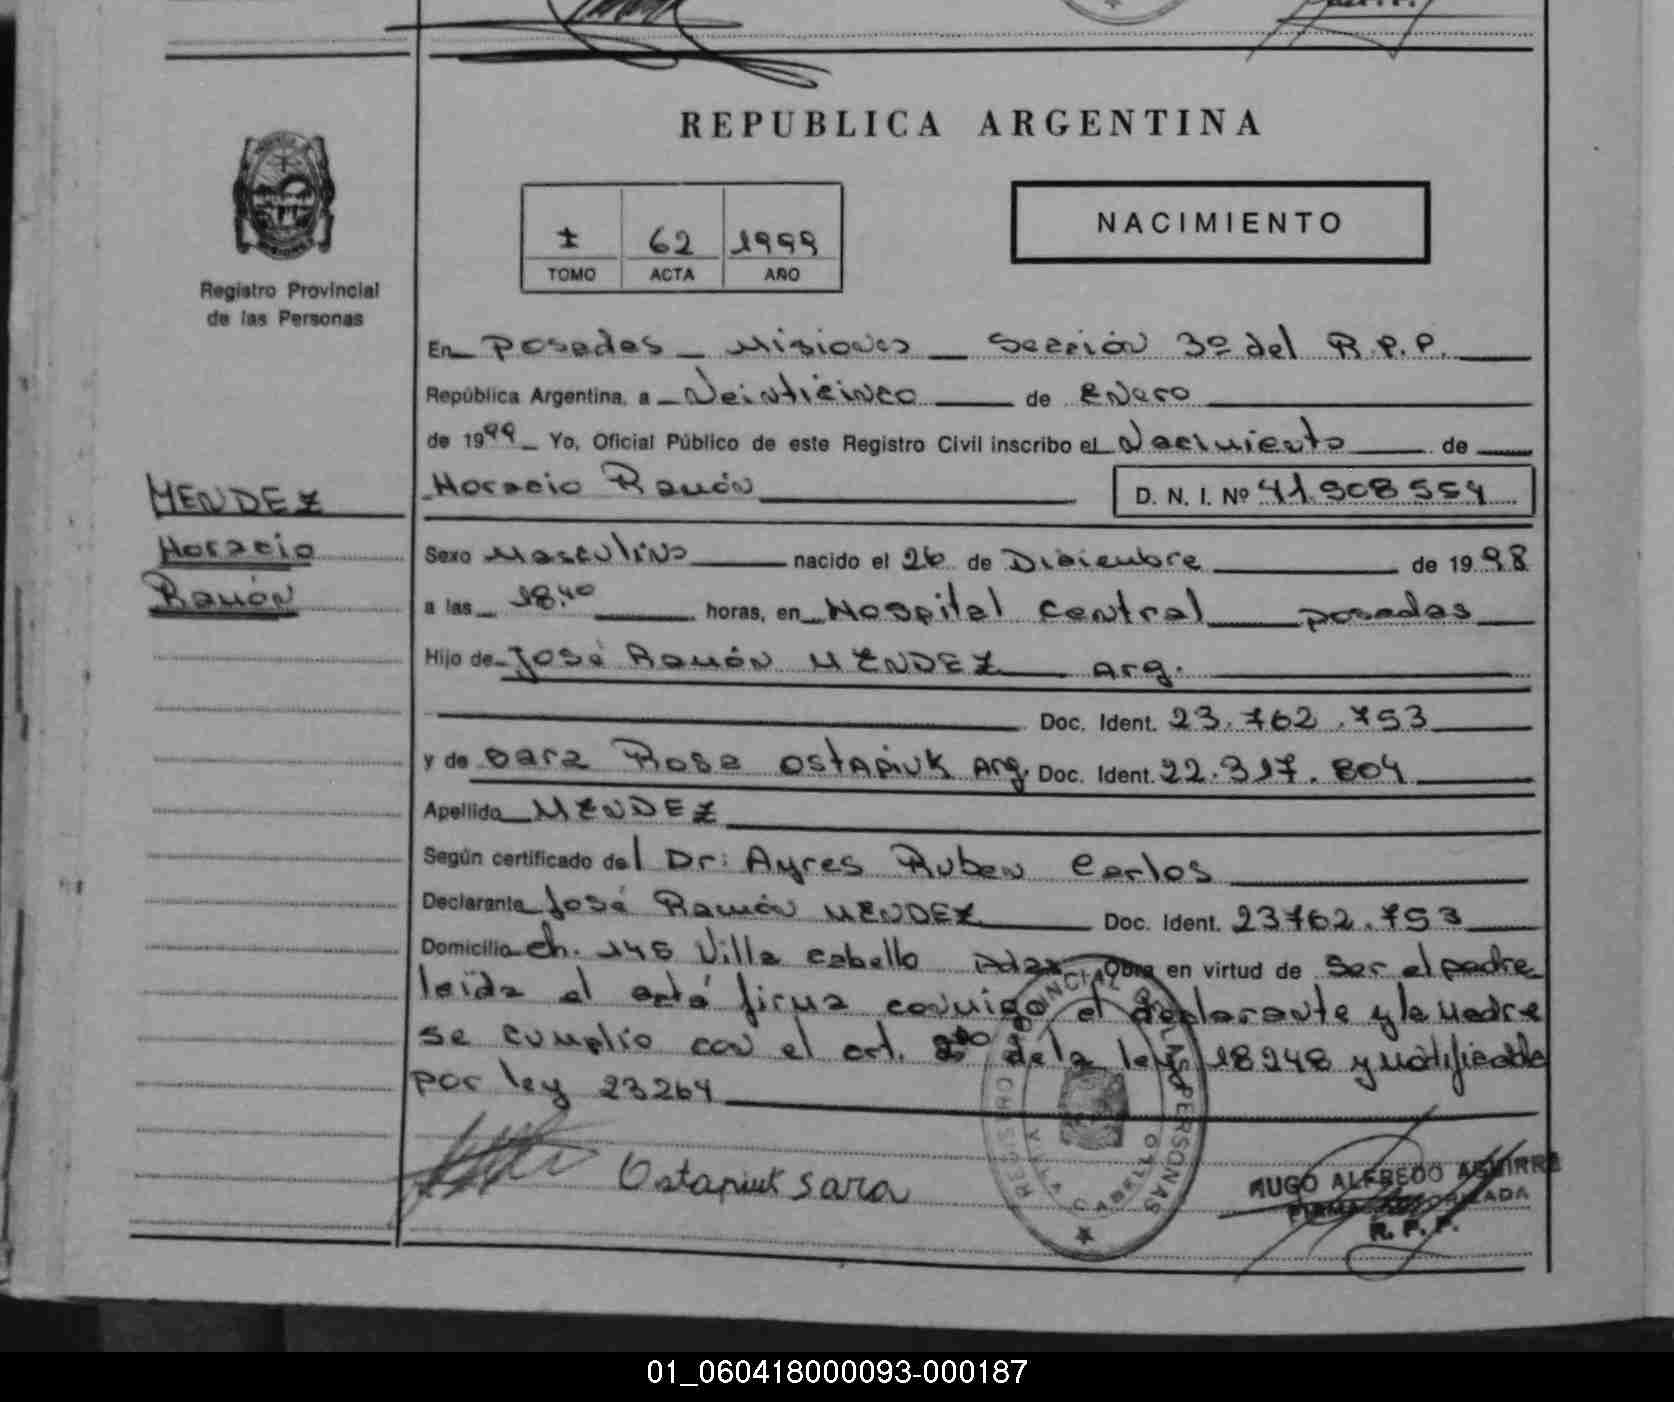 REPUBLICA ARGENTINA
NACIMIENTO
I 62 1999
TOMO ACTA AÑO
Registro Provincial
de las Personas
En Posadas - Misiones - Sección 3º del R.P.P.
República Argentina, a Veinticinco de Enero
de 1999 Yo, Oficial Público de este Registro Civil inscribo el Nacimiento de
Horacio Ramón D. N. I. Nº 41.908554
MENDEZ
Horacio
Ramón
Sexo Masculino nacido el 26 de Diciembre de 1998
a las 18.40 horas, en Hospital Central Posadas
Hijo de José Ramón MENDEZ Arg.
Doc. Ident. 23.762.753
y de Sara Rosa OSTAPIUK Arg. Doc. Ident. 22.317.804
Apellido MENDEZ
Según certificado del Dr: Ayres Ruben Carlos
Declarante José Ramón MENDEZ Doc. Ident. 23762.753
Domicilio Ch. 145 Villa Cabello en virtud de Ser el padre
leída el acta firma conmigo el declarante y la Madre
se cumplio con el art. de la ley 18248 y notificado
por ley 23264
Ostapiuk Sara
REGISTRO PROVINCIAL DE LAS PERSONAS
VILLA CABELLO
HUGO ALFREDO AGUIRRE
FIRMA AUTORIZADA
R. P. P.
01_060418000093-000187